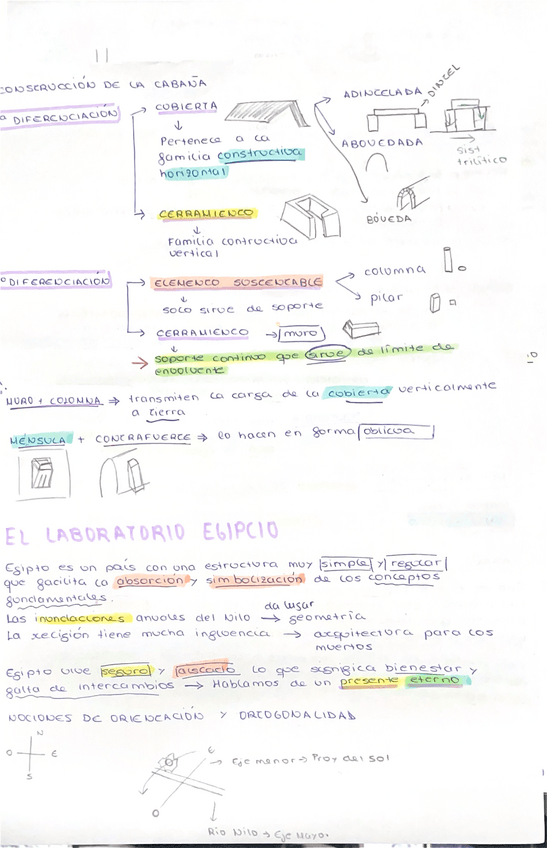 CONSTRUCCIÓN DE LA CABAÑA
DIFERENCIACIÓN
CUBIERTA
Pertenece a la
familia constructiva
horizontal
ADINTELADA → DINTEL
ABOVEDADA
Sist
trilítico
BÓVEDA
CERRAMIENTO
Familia contructiva
vertical
DIFERENCIACIÓN
ELEMENTO SUSTENTABLE
solo sirve de soporte
columna
pilar
CERRAMIENTO → muro
→ soporte continuo que sirve de límite de
envolvente
MURO + COLUMNA ⇒ transmiten la carga de la cubierta verticalmente
a tierra
MÉNSULA + CONTRAFUERTE ⇒ lo hacen en forma oblicua
EL LABORATORIO EGIPCIO
Egipto es un país con una estructura muy simple y regular
que facilita la absorción y simbolización de los conceptos
fundamentales.
da lugar
Las inundaciones anuales del Nilo → geometría
La religión tiene mucha influencia → arquitectura para los
muertos
Egipto vive seguro y aislado lo que significa bienestar y
falta de intercambios → Hablamos de un presente eterno
NOCIONES DE ORIENTACIÓN Y ORTOGONALIDAD
N
O E
S
E
→ Eje menor → Proy del sol
O
Río Nilo → Eje Mayor